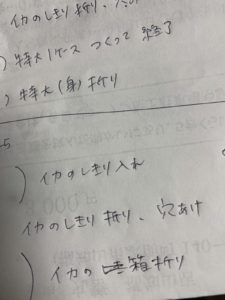 イカのしきり折り、穴
) 特大1ケース つくって 終了
) 特大(身)折り
5
) イカのしきり入れ
イカのしきり折り、穴あけ
) イカの 箱折り